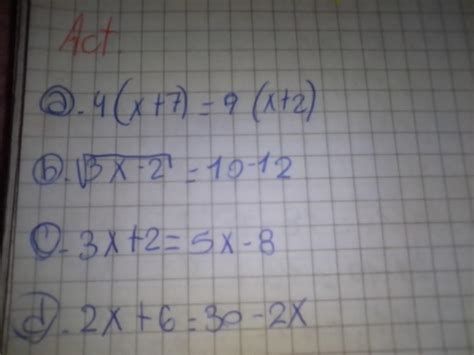 Act.
a. 4(x+7) = 9 (x+2)
b. √3x-2 = 10-12
c. 3x+2 = 5x-8
d. 2x+6 = 30-2x